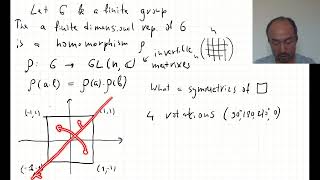 Let G be a finite group
The a finite dimensional rep. of G
is a homomorphism ρ
ρ: G → GL(n, ℂ) ← invertible matrixes
n
ρ(a·b) = ρ(a)·ρ(b)
What a symmetries of □
4 rotations (90°, 180°, 270°, 0)
(-1,1) (1,1)
(1,-1)